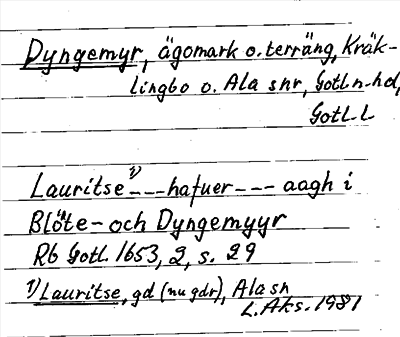 Dyngemyr, ägomark o. terräng, Kräk-
lingbo o. Ala snr, Gotl. n. hd,
Gotl. l
Lauritse ¹⁾ --- hafuer --- aagh i
Blöte- och Dyngemyyr
Rb Gotl. 1653, 2, s. 29
1) Lauritse, gd (nu gdr), Ala sn
L. Aks. 1981